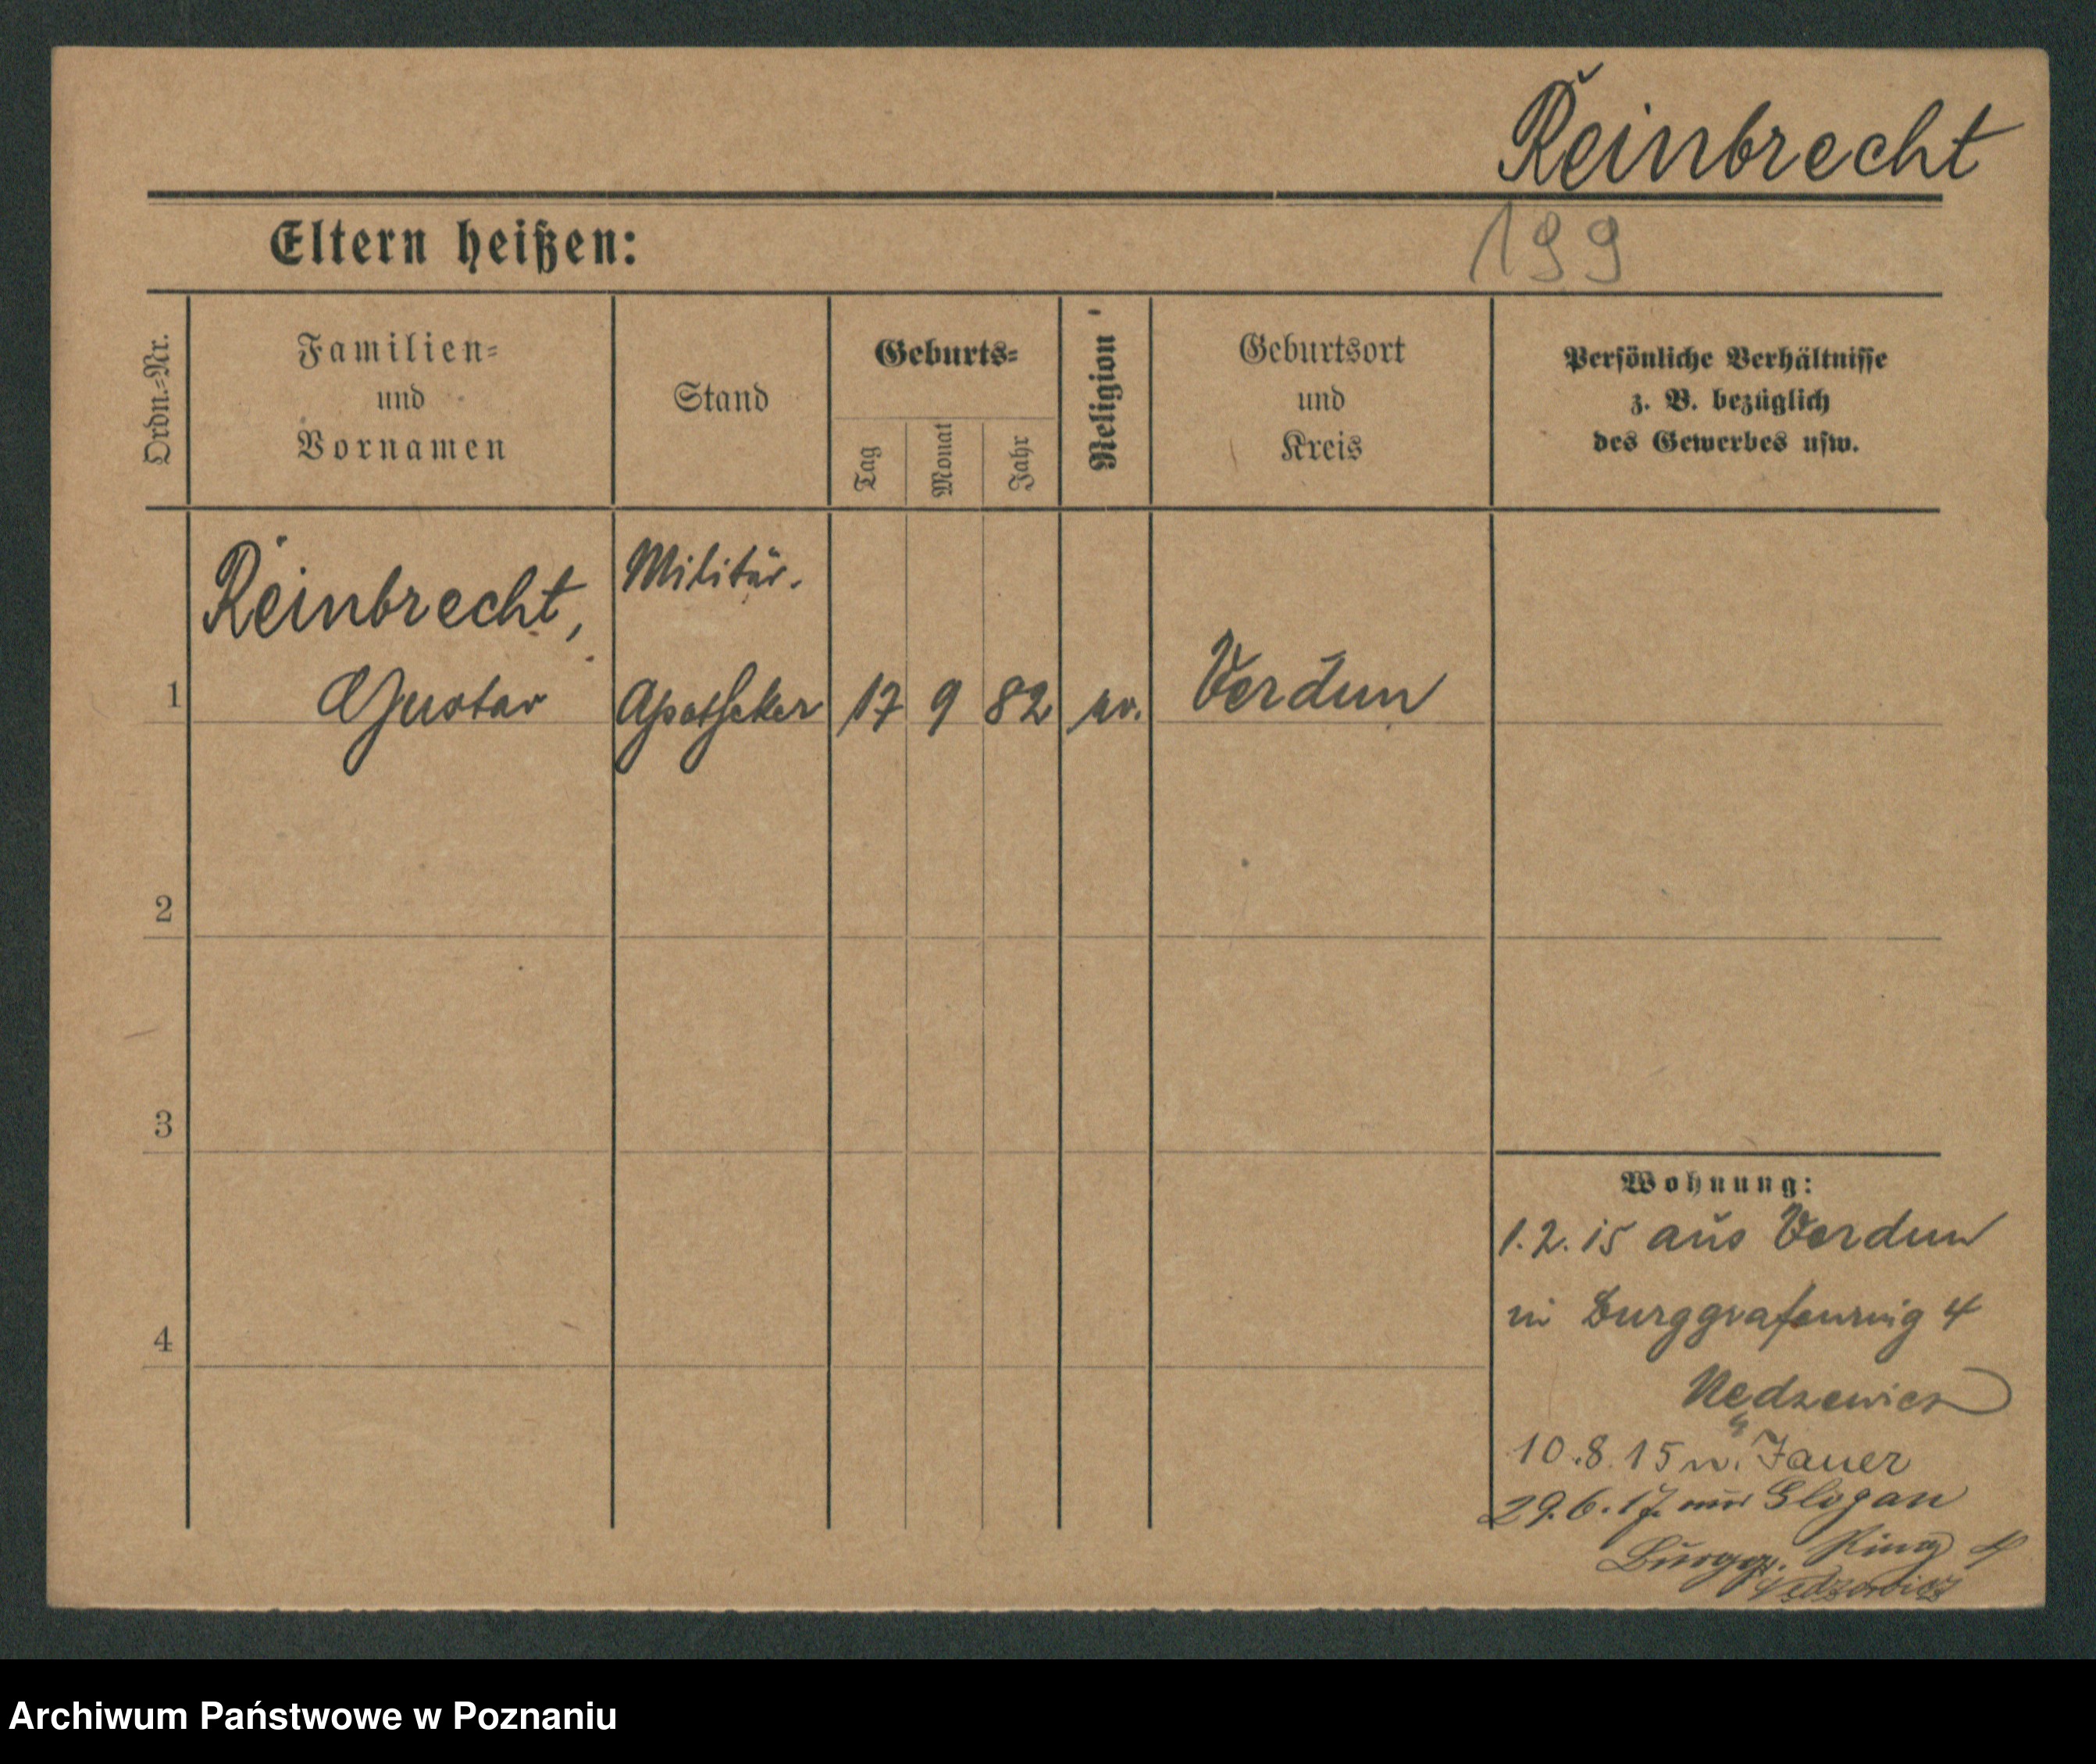 Reinbrecht
Eltern heißen:
199
Ordn.-Nr.
Familien-
und
Vornamen
Stand
Geburts-
Tag
Monat
Jahr
Religion
Geburtsort
und
Kreis
Persönliche Verhältnisse
z. B. bezüglich
des Gewerbes usw.
Reinbrecht,
Militär.
1 Gustav Apotheker 17 9 82 ev. Verdun
2
3
4
Wohnung:
1.2.15 aus Verdun
in Burggrafenring 4
Nędzewicz
10.8.15 n. Jauer
29.6.17 aus Glogau
Burggr. Ring 4
Nędzewicz
Archiwum Państwowe w Poznaniu